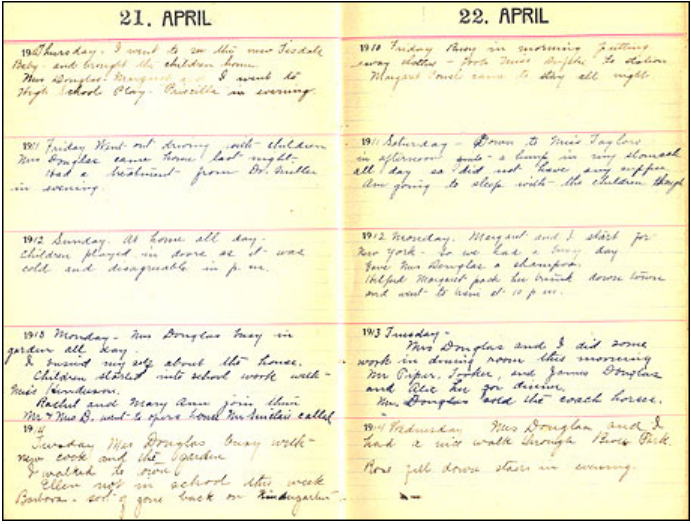 21. APRIL
1910 Thursday. I went to see the new Tisdale
Baby - and brought the children home.
Mrs Douglas - Margaret and I went to
High School Play - Priscilla in evening.
1911 Friday Went out driving with children
Mrs Douglas came home last night -
Had a treatment from Dr. Nutter
in evening.
1912 Sunday. At home all day.
Children played in doors as it was
cold and disagreeable in p.m.
1913 Monday - Mrs Douglas busy in
garden all day.
I busied myself about the house.
Children started into school work with
Miss Henderson.
Rachel and Mary Ann join them
Mr & Mrs D. went to opera house Mrs Sinclair called
1914
Tuesday Mrs Douglas busy with
new cook and the garden
I walked to town
Ellen not in school this week
Barbara - sort of gone back on Kindergarten
22. APRIL
1910 Friday Busy in morning putting
away clothes - took Miss to station
Margaret came to stay all night
1911 Saturday - Down to Miss Taylors
in afternoon a lump in my stomach
all day so did not have any supper
Am going to sleep with the children though
1912 Monday. Margaret and I start for
New York - so we had a busy day
Gave Mrs Douglas a shampoo.
Helped Margaret pack her trunk down town
and went to train at 10 p.m.
1913 Tuesday -
Mrs Douglas and I did some
work in dining room this morning
Mr Piper, Tooker, and James Douglas
and here for dinner.
Mrs. Douglas sold the coach horses.
1914 Wednesday Mrs Douglas and I
had a nice walk through Park.
Rose fell down stairs in evening.